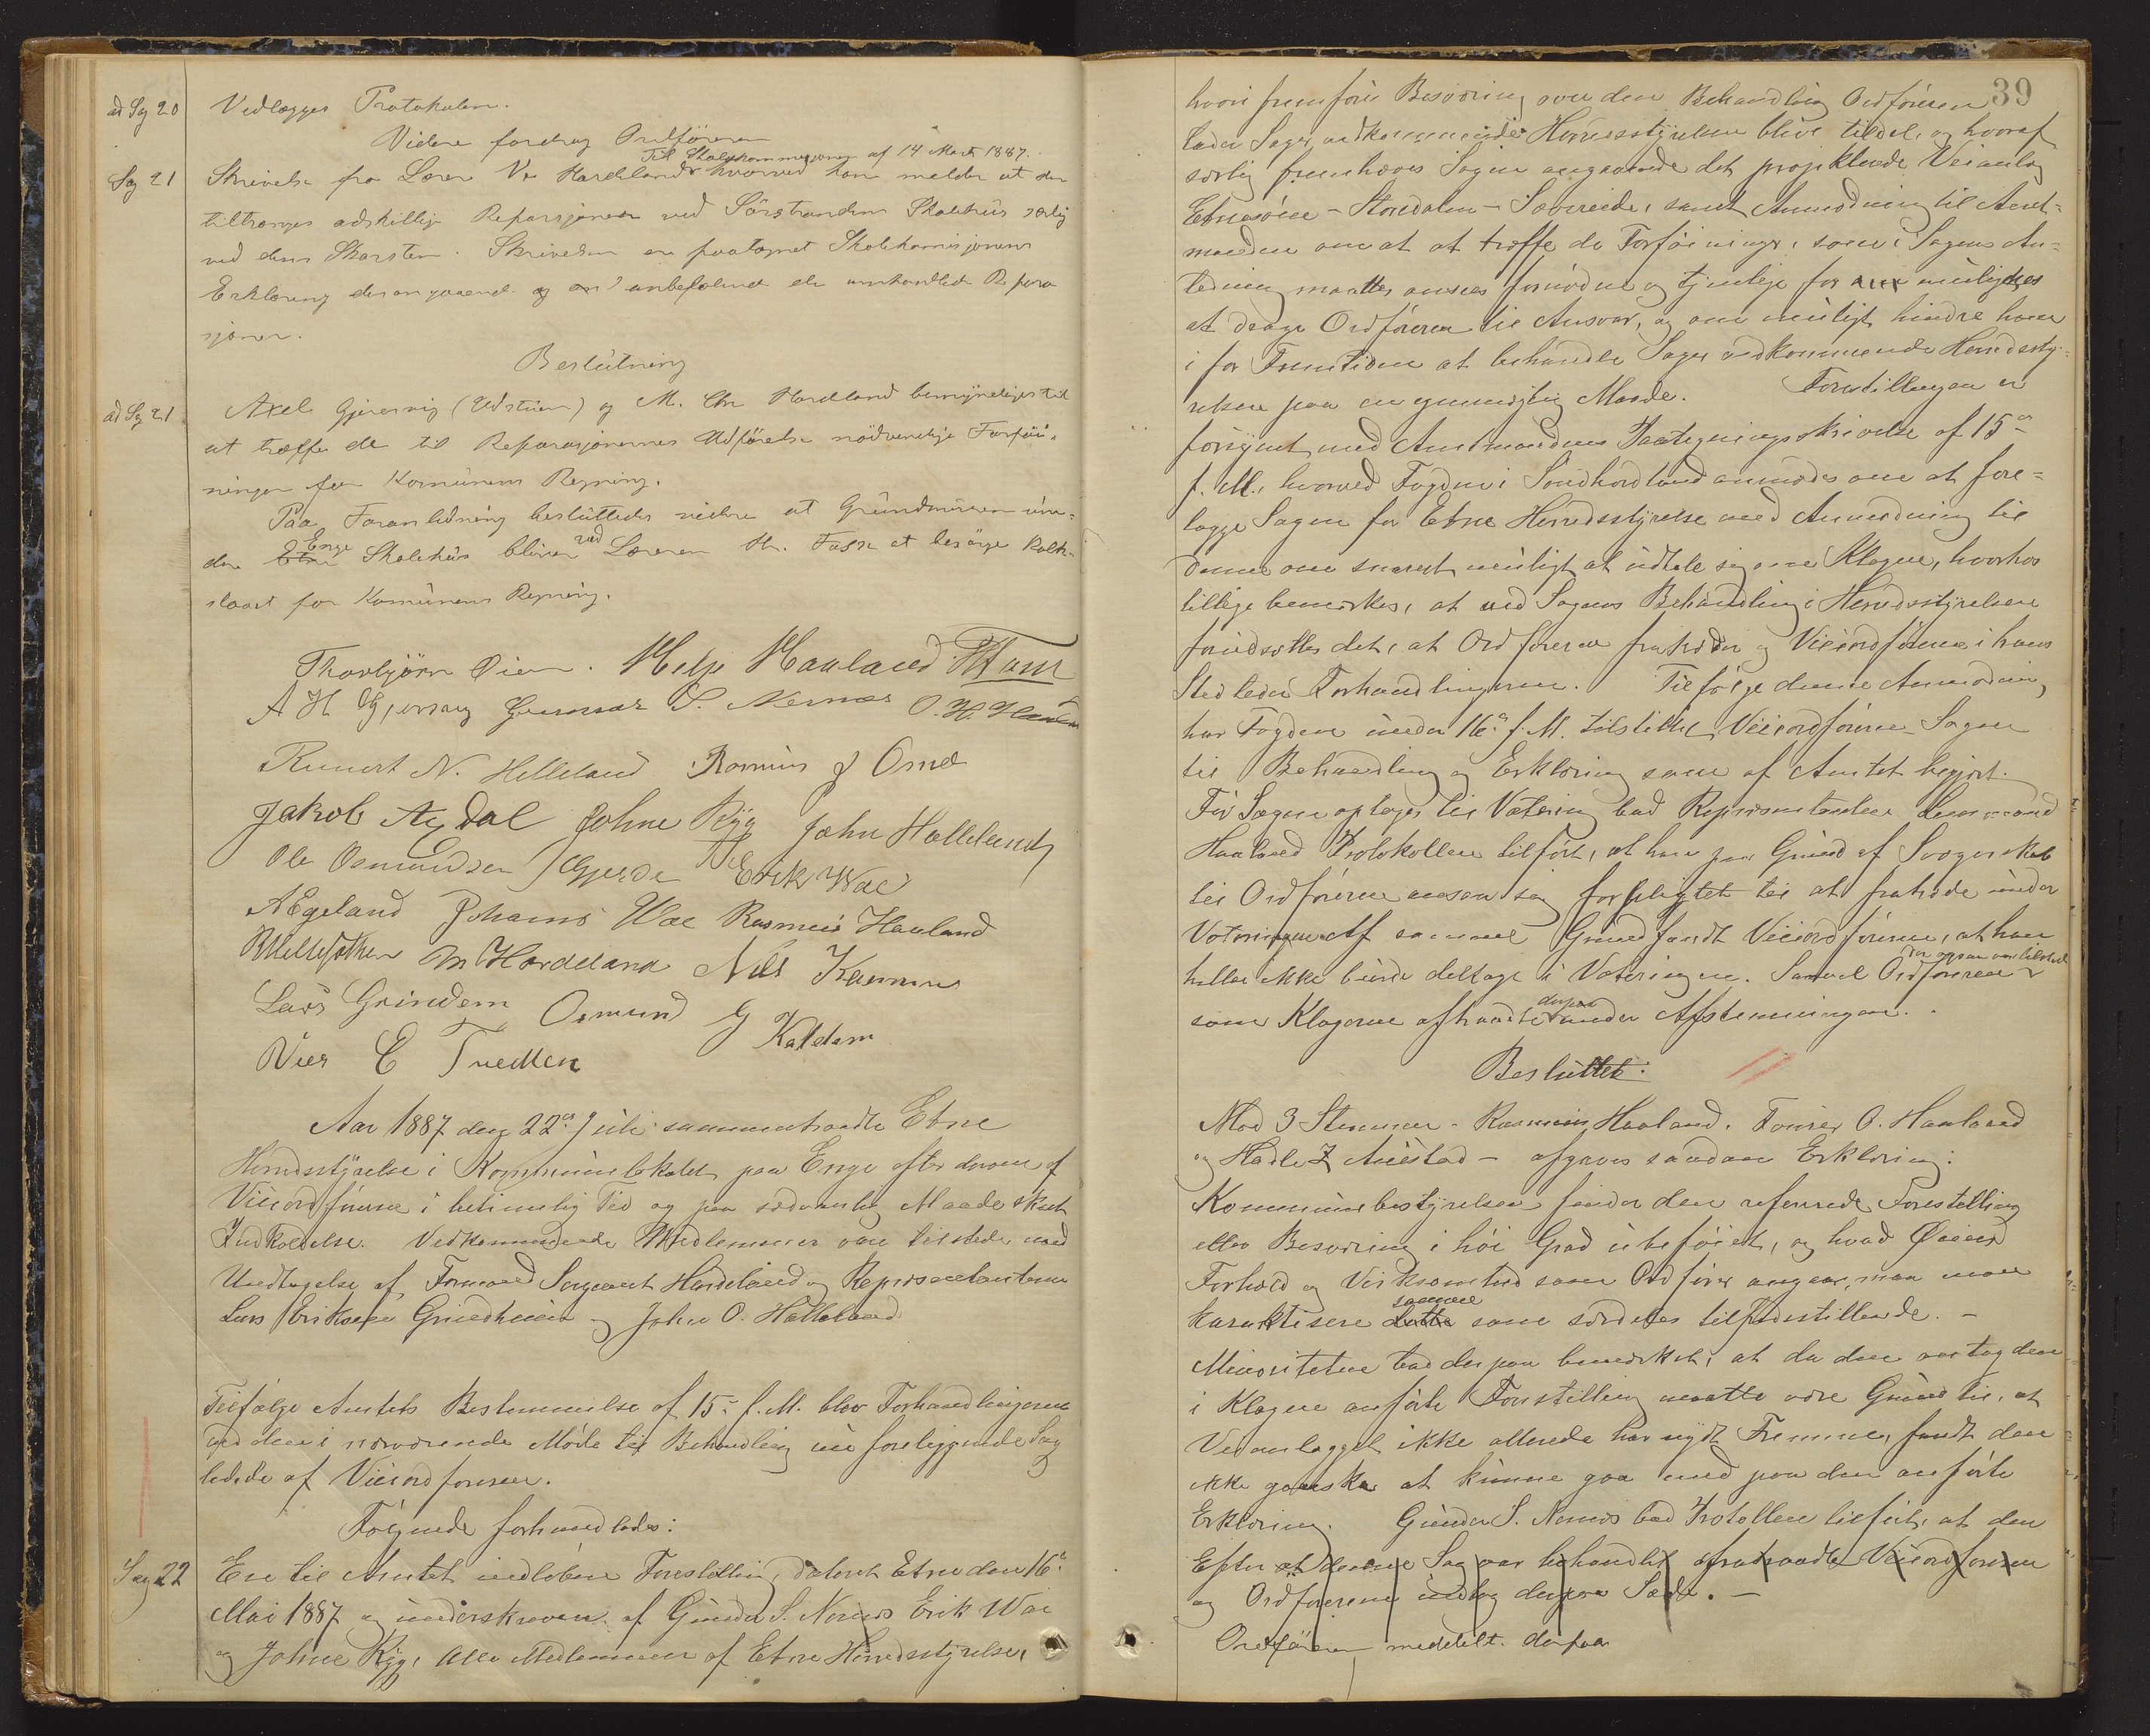 ad Sag 20 Vedlægges Protokolen.
Videre foredrog Ordføreren
Til Skolekommisjonen af 14 Marts 1887.
Sag 21 Skrivelse fra Lærer Hardeland hvorved han melder at der
tiltrænges adskillige Reparasjoner ved Sørstrandens Skolehus særlig
ved dens Skorsten. Skrivelsen er paategnet Skolekomisjonens
Erklæring derangaaende og anbefalende de omhandlede Repara
sjoner.
Beslutning
ad Sag 21 Axel Gjersvig (Udstuen) og M. Chr Hardeland bemyndiges til
at træffe de til Reparasjonernes Udførelse nødvendige Forføi-
ninger for Komunens Regning.
Paa Foranledning besluttedes videre at Grundmuren un-
der Etne Enge Skolehus bliver ved Læreren Hr. Fosse at besørge kalk-
slaaet for Komunens Regning.
Thorbjørn Øien. Helje Haaland
A H Gjersvig Gunnar S. Nernæs O. H. Haaland
Runert N. Helleland Rasmus J Osnes
Jakob Axdal Johne Rygg John Halleland
Ole Osmundsen Gjerde Erik Wae
A Egeland Johanes Wae Rasmus Haaland
M Hardeland Nils Kambe
Lars Grindem Osmund G Kaldem
Nier E Tvedten
Aar 1887 den 22de Juli sammentraadte Etne
Herredsstyrelse i Kommunelokalet paa Enge efter derom af
Viceordføreren i betimelig Tid og paa sædvanlig Maade skeet
Indkaldelse. Vedkommende Medlemmer vare tilstede med
Undtagelse af Formand Sergeant Hardeland og Repræsentanterne
Lars Eriksen Grindheim og John O. Halleland
Tilfølge Amtets Bestemmelse af 15de f. M. blev Forhandlingerne
ved den i nærværende Møde til Behandling nu foreliggende Sag
ledede af Viceordføreren.
Følgende forhandledes:
Sag 22 En til Amtet indløben Forestilling, dateret Etne den 16de
Mai 1887 og underskreven af Gunder S. Nernæs Erik Wae
og Johne Rygg, alle Medlemmer af Etne Herredsstyrelse,
39
hvori fremføres Besværing over den Behandling Ordføreren
lader Sager vedkommende Herredsstyrelsen blive tildel, og hvoraf
særlig fremhæves Sagen angaaende det projekterede Veianlæg
Etnesøen - Stordalen - Sævereide, samt Anmodning til Amt-
manden om at at træffe de Forføininger, som i Sagens An-
ledning maatte ansees fornødne og tjenlige for muligens
at drage Ordføreren til Ansvar, og om muligt hindre ham
i for Fremtiden at behandle Sager vedkommende Herredssty-
relsen paa en egenmægtig Maade. Forestillingen er
forsynet med Amtmandens Paategningsskrivelse af 15de
f. M., hvorved Fogden i Søndhordland anmodes om at fore-
lægge Sagen for Etne Herredsstyrelse med Anmodning til
denne om snarest muligt at udtale sig om Klagen, hvorhos
tillige bemærkes, at ved Sagens Behandling i Herredsstyrelsen
forudsættes det, at Ordføreren fratræder og Viceordføreren i hans
Sted leder Forhandlingerne. Tilfølge denne Anmodning
har Fogden under 16de f. M. tilstillet Viceordføreren Sagen
til Behandling og Erklæring som af Amtet begjært.
Før Sagen optages til Votering bad Repræsentanten Lensmand
Haaland Protokollen tilført, at han paa Grund af Svogerskab
til Ordføreren ansaa sig forpligtet til at fratræde under
Voteringen. Af samme Grund fandt Viceordføreren, at han
heller ikke burde deltage i Voteringen. Samvel Ordføreren der ogsaa var tilstede
som Klagerne aftraadte derpaa under Afstemningen.
Besluttet:
Mod 3 Stemmer - Rasmus Haaland, Tønnes O. Haaland
og Hadle Z Auestad - afgaves saadan Erklæring:
Kommunebestyrelsen finder den refererede Forestilling
eller Besværing i høi Grad ubeføiet, og hvad Øiens
Forhold og Virksomhed som Ordfører angaar, maa man
karaktisere dette samme som særdeles tilfredsstillende. -
Minoriteten bad derpaa bemærket, at da den antog den
i Klagen anførte Forestilling maatte være Grund til, at
Veianlægget ikke allerede har nydt Fremme, fandt den
ikke ganske at kunne gaa med paa den anførte
Erklæring. Gunder S. Nernæs bad Protokollen tilført, at den
Efter at denne Sag var behandlet fratraadte Viceordføreren
og Ordføreren indtog derpaa Sæde. -
Ordføreren meddelt. derpaa